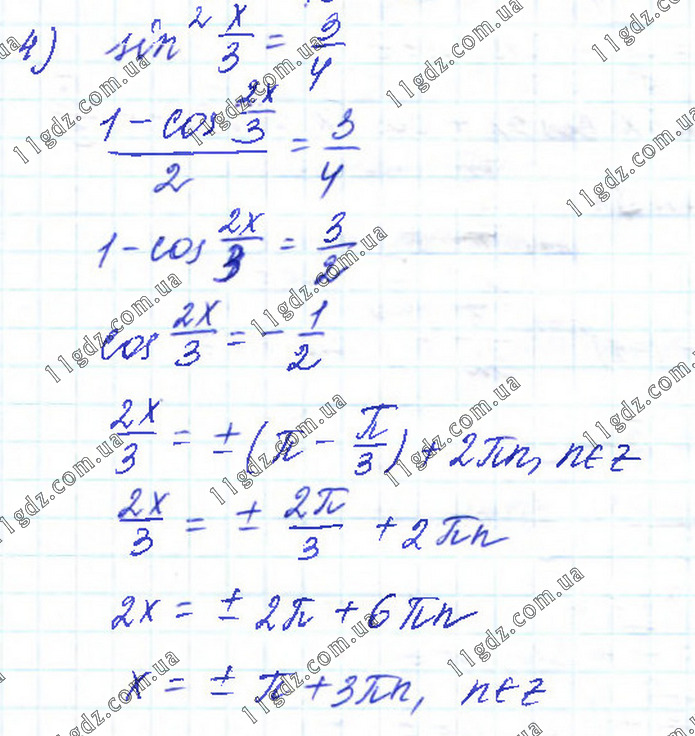 4) sin² x/3 = 3/4
(1 - cos 2x/3)/2 = 3/4
1 - cos 2x/3 = 3/2
cos 2x/3 = - 1/2
2x/3 = ± (π - π/3) + 2πn, n∈z
2x/3 = ± 2π/3 + 2πn
2x = ± 2π + 6πn
x = ± π + 3πn, n∈z
11gdz.com.ua
11gdz.com.ua
11gdz.com.ua
11gdz.com.ua
11gdz.com.ua
11gdz.com.ua
11gdz.com.ua
11gdz.com.ua
11gdz.com.ua
11gdz.com.ua
11gdz.com.ua
11gdz.com.ua
11gdz.com.ua